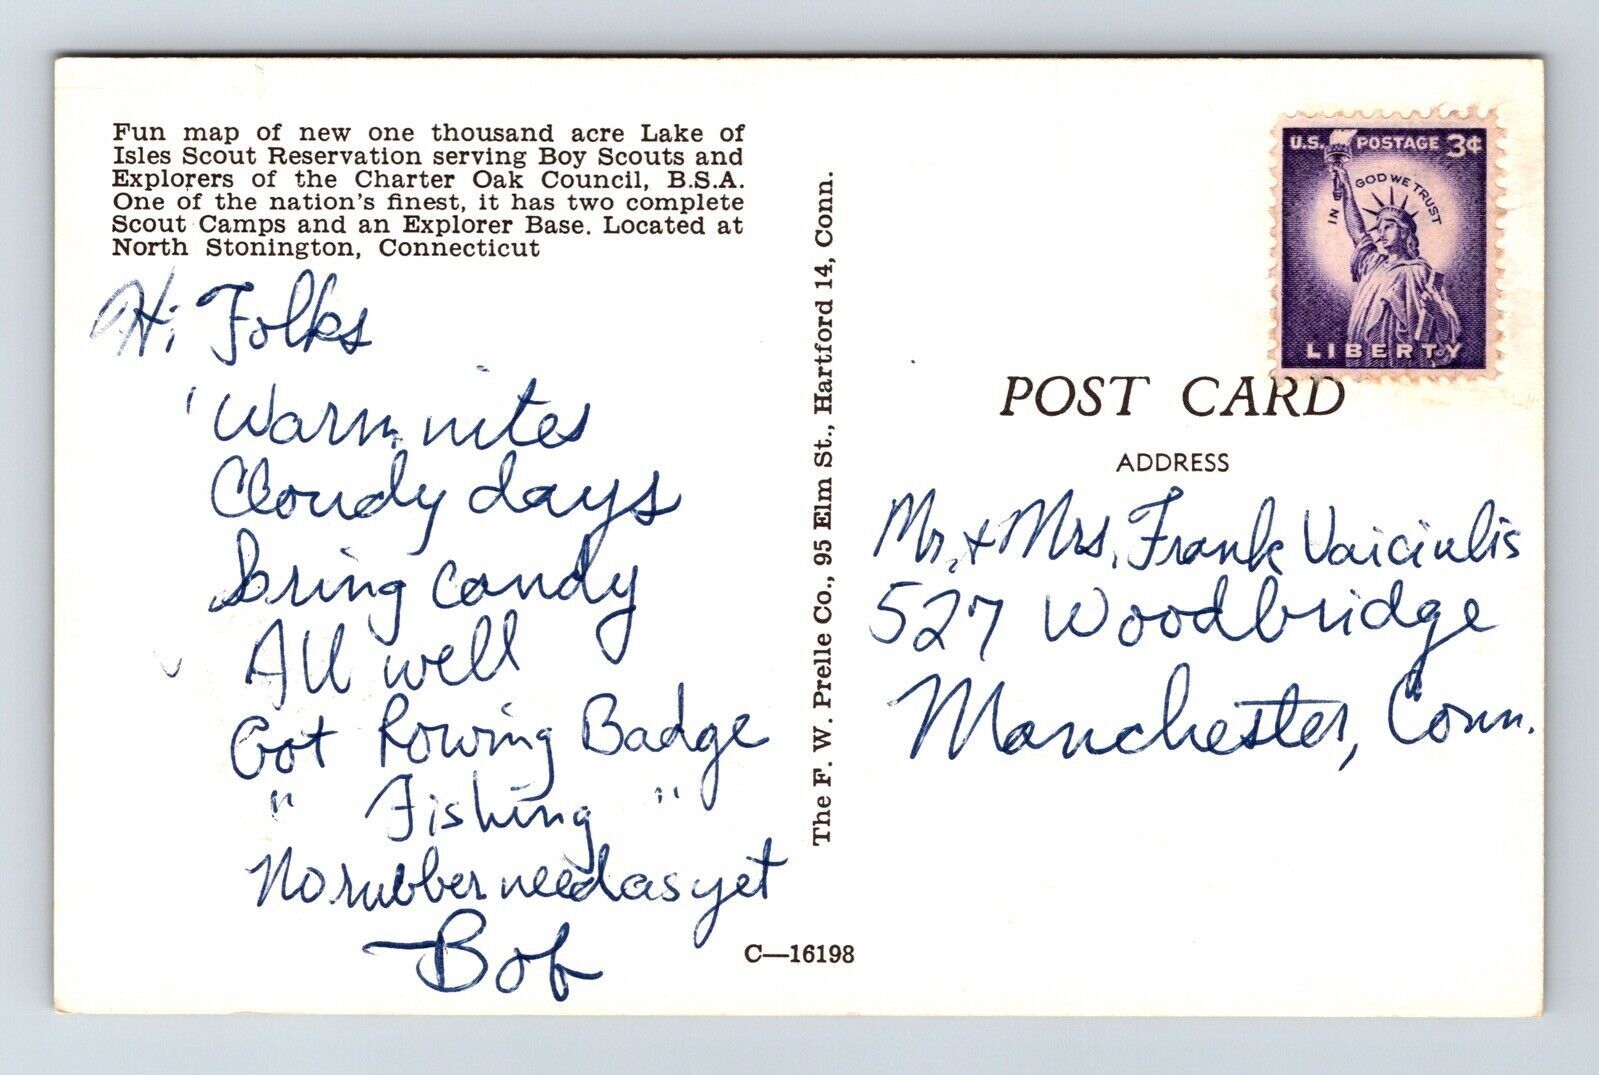 Fun map of new one thousand acre Lake of
Isles Scout Reservation serving Boy Scouts and
Explorers of the Charter Oak Council, B.S.A.
One of the nation's finest, it has two complete
Scout Camps and an Explorer Base. Located at
North Stonington, Connecticut
Hi Folks
Warm nites
Cloudy days
Bring candy
All well
Got Rowing Badge
" Fishing "
No rubber need as yet
Bob
The F. W. Prelle Co., 95 Elm St., Hartford 14, Conn.
C—16198
U.S. POSTAGE 3¢
IN GOD WE TRUST
LIBERTY
POST CARD
ADDRESS
Mr. + Mrs. Frank Vaiciulis
527 Woodbridge
Manchester, Conn.